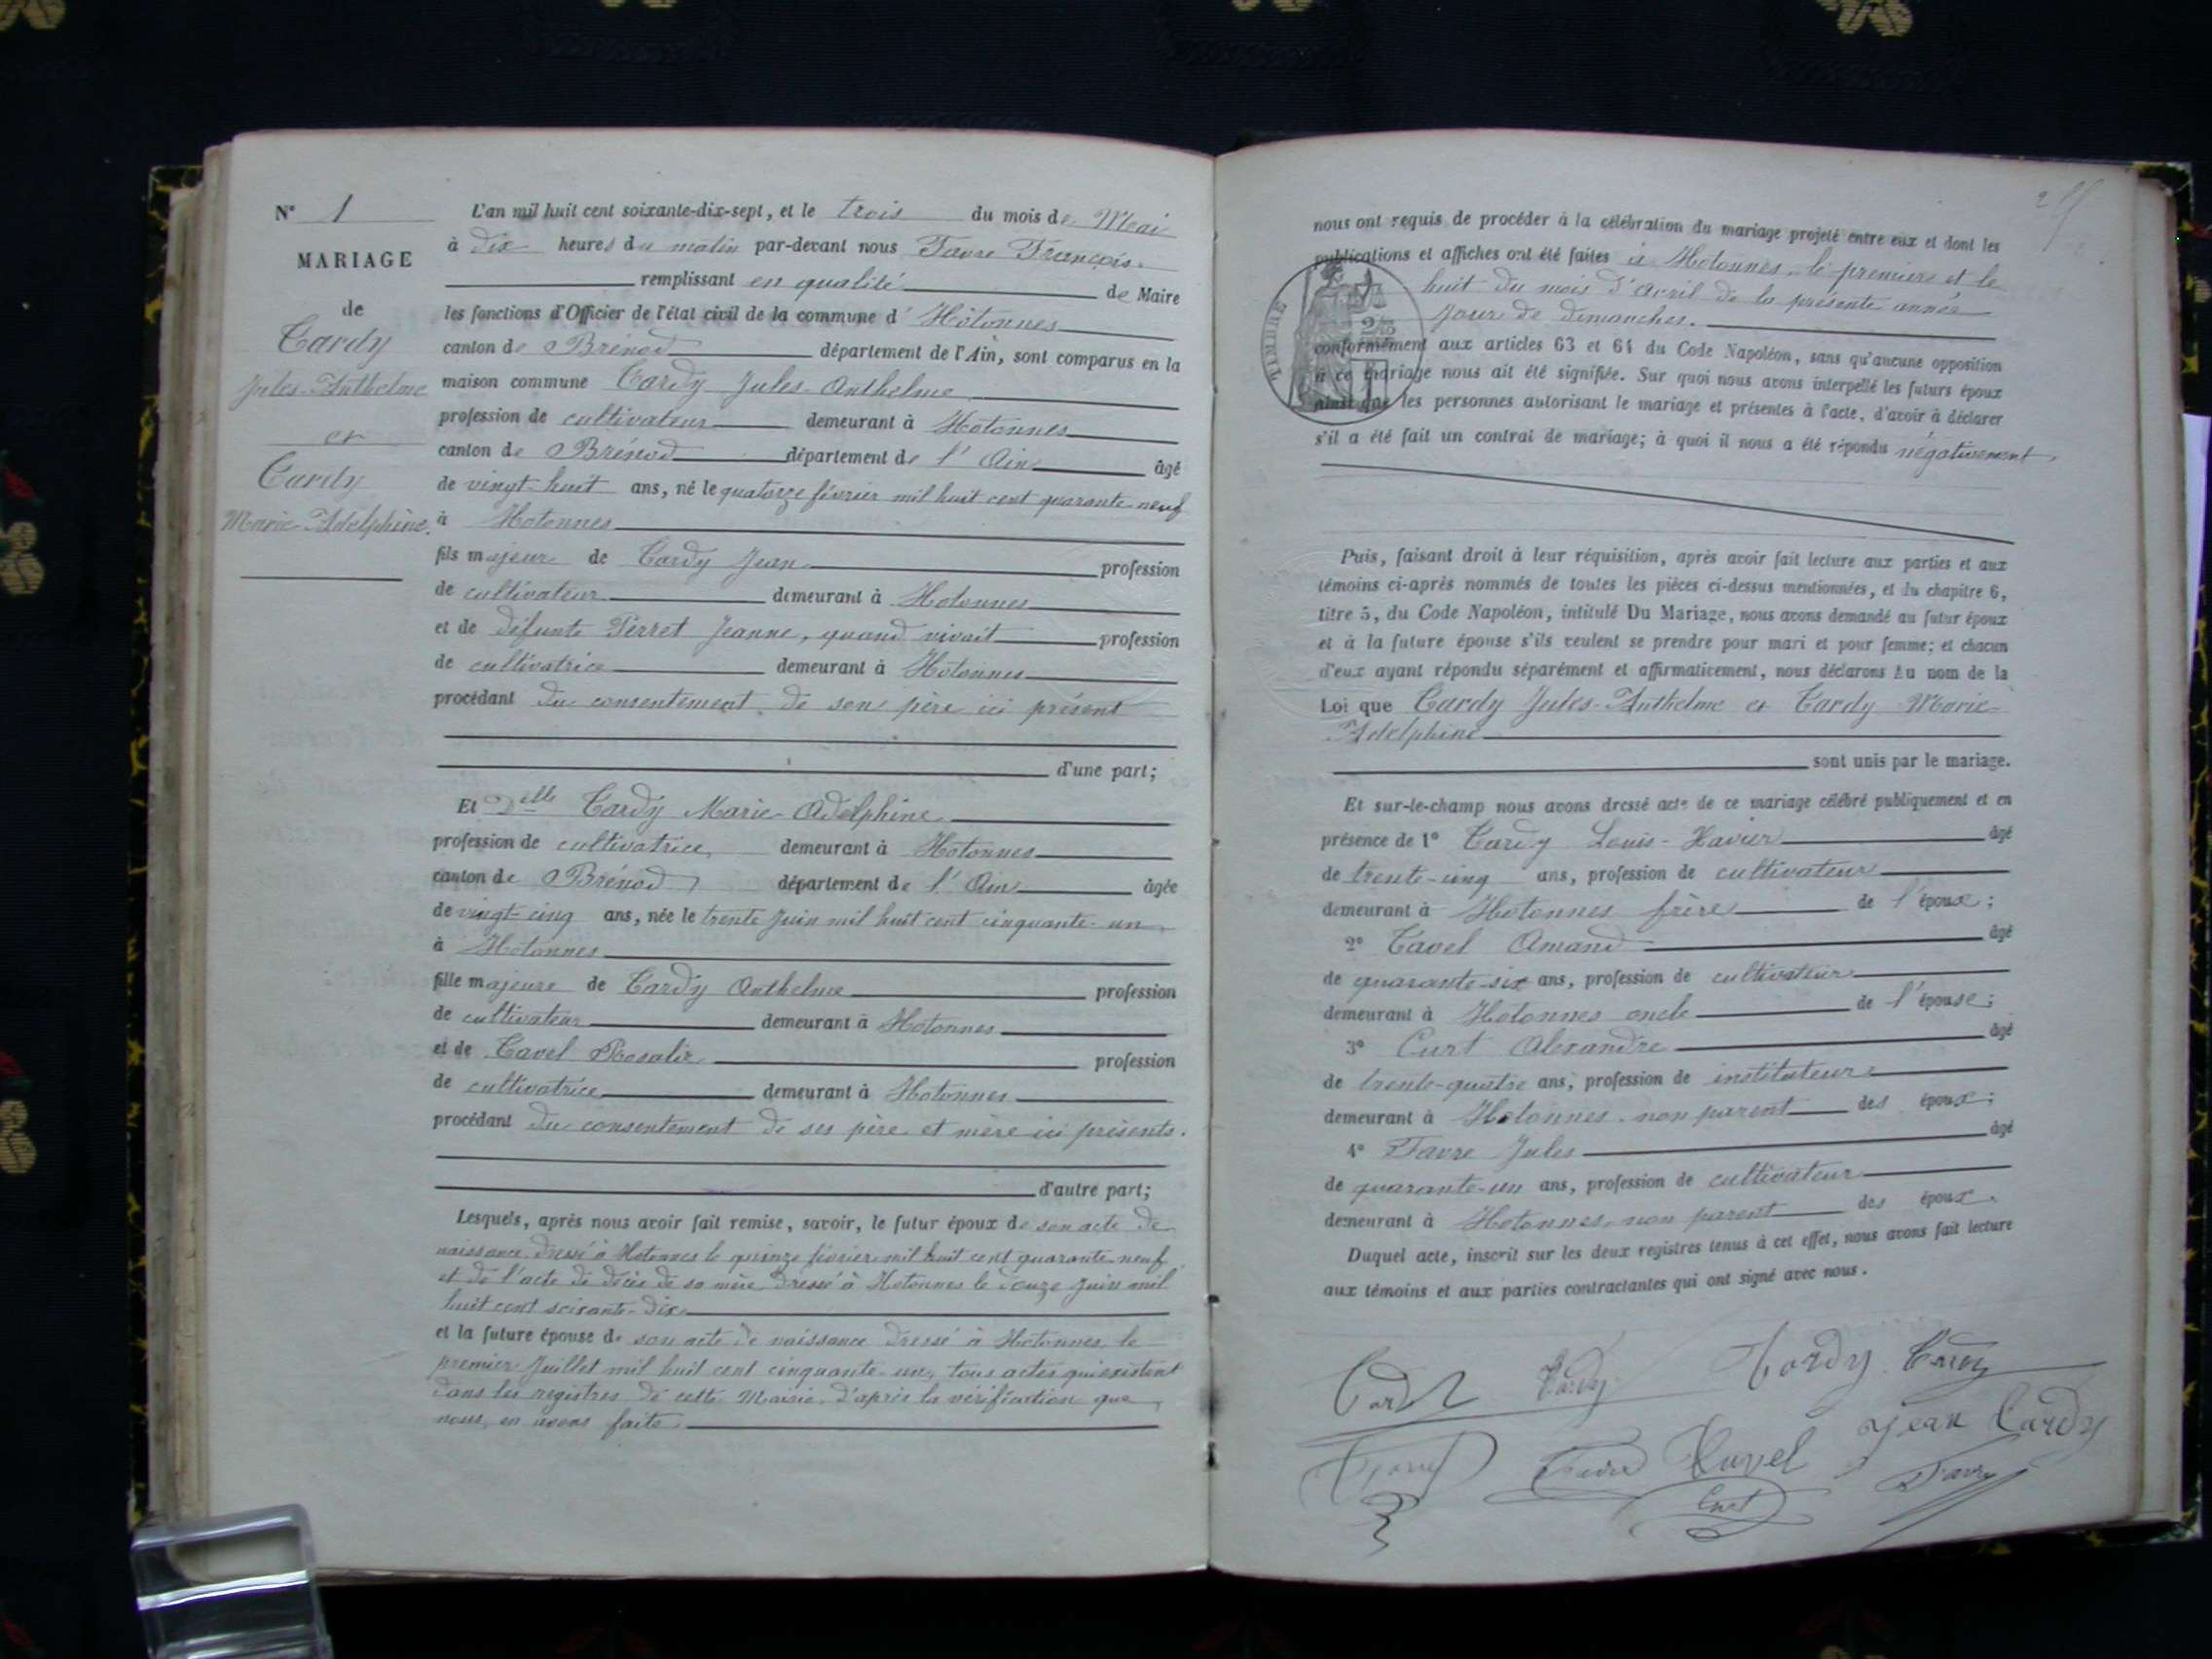 N° 1
MARIAGE
de
Cardy
Jules-Anthelme
et
Cardy
Marie-Adelphine.
L'an mil huit cent soixante-dix-sept, et le trois du mois de Mai
à dix heures du matin par-devant nous Favre François.
remplissant en qualité de Maire
les fonctions d'Officier de l'état civil de la commune d' Hotonnes
canton de Brénod département de l'Ain, sont comparus en la
maison commune Cardy Jules-Anthelme
profession de cultivateur demeurant à Hotonnes
canton de Brénod département de l'Ain âgé
de vingt-huit ans, né le quatorze février mil huit cent quarante-neuf
à Hotonnes
fils majeur de Cardy Jean profession
de cultivateur demeurant à Hotonnes
et de défunte Perret Jeanne, quand vivait profession
de cultivatrice demeurant à Hotonnes
procédant du consentement de son père ici présent
d'une part;
Et Delle Cardy Marie-Adelphine
profession de cultivatrice demeurant à Hotonnes
canton de Brénod département de l'Ain âgée
de vingt-cinq ans, née le trente Juin mil huit cent cinquante-un
à Hotonnes
fille majeure de Cardy Anthelme profession
de cultivateur demeurant à Hotonnes
et de Tavel Rosalie profession
de cultivatrice demeurant à Hotonnes
procédant du consentement de ses père et mère ici présents.
d'autre part;
Lesquels, après nous avoir fait remise, savoir, le futur époux de son acte de
naissance dressé à Hotonnes le quinze février mil huit cent quarante-neuf
et de l'acte de décès de sa mère dressé à Hotonnes le douze Juin mil
huit cent soixante-dix
et la future épouse de son acte de naissance dressé à Hotonnes le
premier Juillet mil huit cent cinquante-un, tous actes qui existent
dans les registres de cette Mairie d'après la vérification que
nous en avons faite.
nous ont requis de procéder à la célébration du mariage projeté entre eux et dont les
publications et affiches ont été faites à Hotonnes le premier et le
huit du mois d'avril de la présente année
jours de dimanches.
TIMBRE
conformément aux articles 63 et 64 du Code Napoléon, sans qu'aucune opposition
à ce mariage nous ait été signifiée. Sur quoi nous avons interpellé les futurs époux
ainsi que les personnes autorisant le mariage et présentes à l'acte, d'avoir à déclarer
s'il a été fait un contrat de mariage; à quoi il nous a été répondu négativement.
Puis, faisant droit à leur réquisition, après avoir fait lecture aux parties et aux
témoins ci-après nommés de toutes les pièces ci-dessus mentionnées, et du chapitre 6,
titre 5, du Code Napoléon, intitulé Du Mariage, nous avons demandé au futur époux
et à la future épouse s'ils veulent se prendre pour mari et pour femme; et chacun
d'eux ayant répondu séparément et affirmativement, nous déclarons au nom de la
Loi que Cardy Jules-Anthelme et Cardy Marie-
Adelphine
sont unis par le mariage.
Et sur-le-champ nous avons dressé acte de ce mariage célébré publiquement et en
présence de 1° Cardy Louis-Xavier âgé
de trente-cinq ans, profession de cultivateur
demeurant à Hotonnes frère de l'époux;
2° Tavel Amand âgé
de quarante-six ans, profession de cultivateur
demeurant à Hotonnes oncle de l'épouse;
3° Curt Alexandre âgé
de trente-quatre ans, profession de instituteur
demeurant à Hotonnes non parent des époux;
4° Favre Jules âgé
de quarante-un ans, profession de cultivateur
demeurant à Hotonnes, non parent des époux.
Duquel acte, inscrit sur les deux registres tenus à cet effet, nous avons fait lecture
aux témoins et aux parties contractantes qui ont signé avec nous.
Cardy Cardy Cardy Cardy
Favre Tavel Jean Cardy
Curt Favre